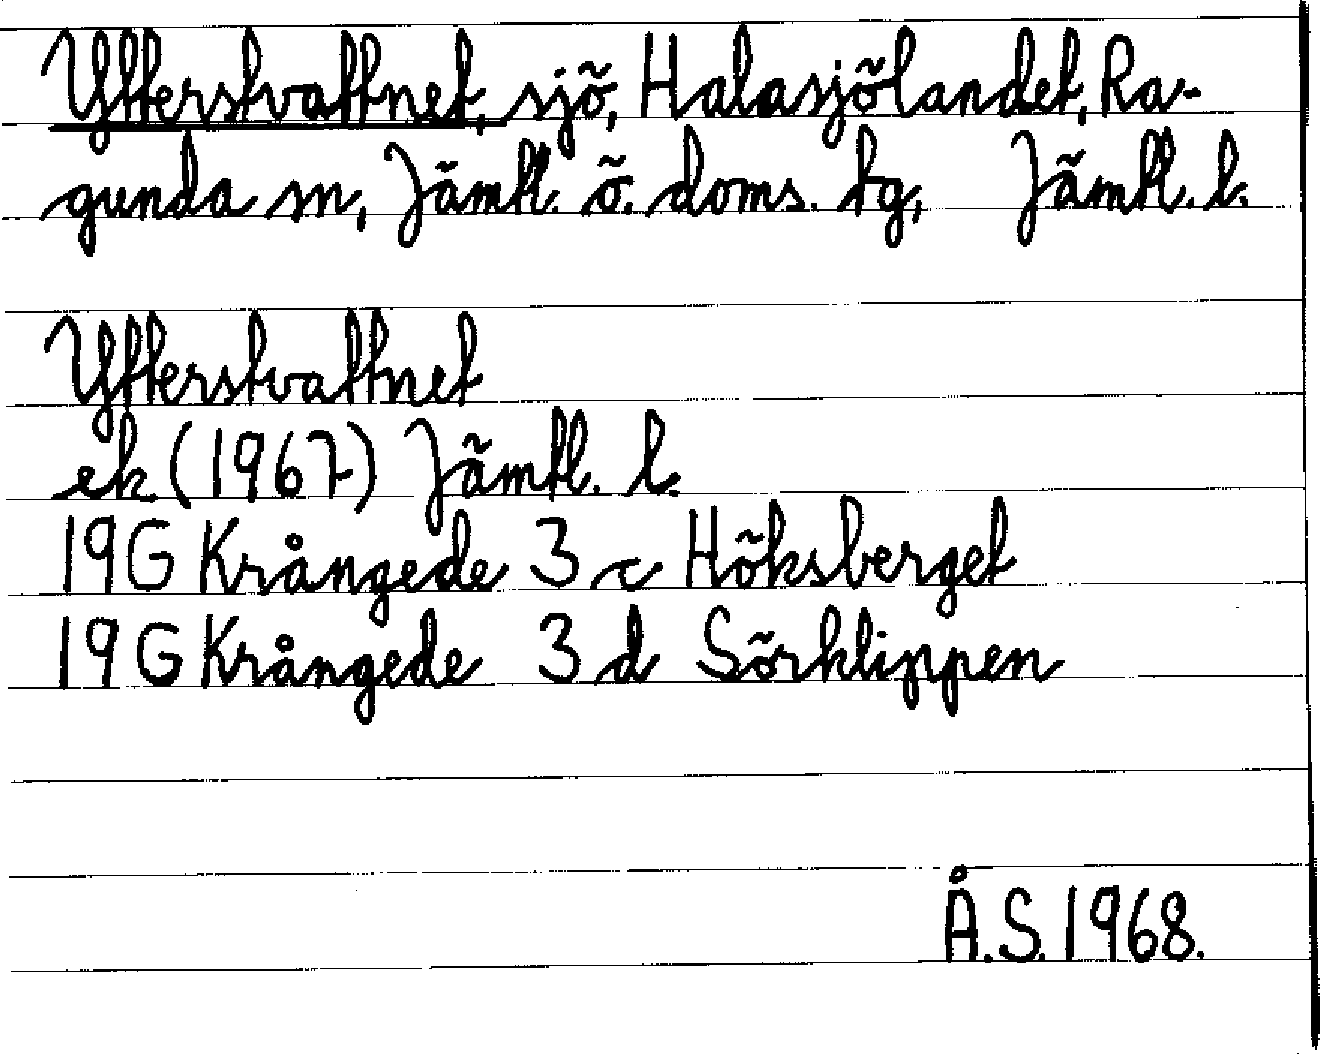 Ytterstvattnet, sjö, Halasjölandet, Ra-
gunda sn, Jämtl. ö. doms. tg, Jämtl. l.
Ytterstvattnet
ek (1967) Jämtl. l.
19G Krångede 3 c Höksberget
19G Krångede 3 d Sörklippen
Å.S. 1968.